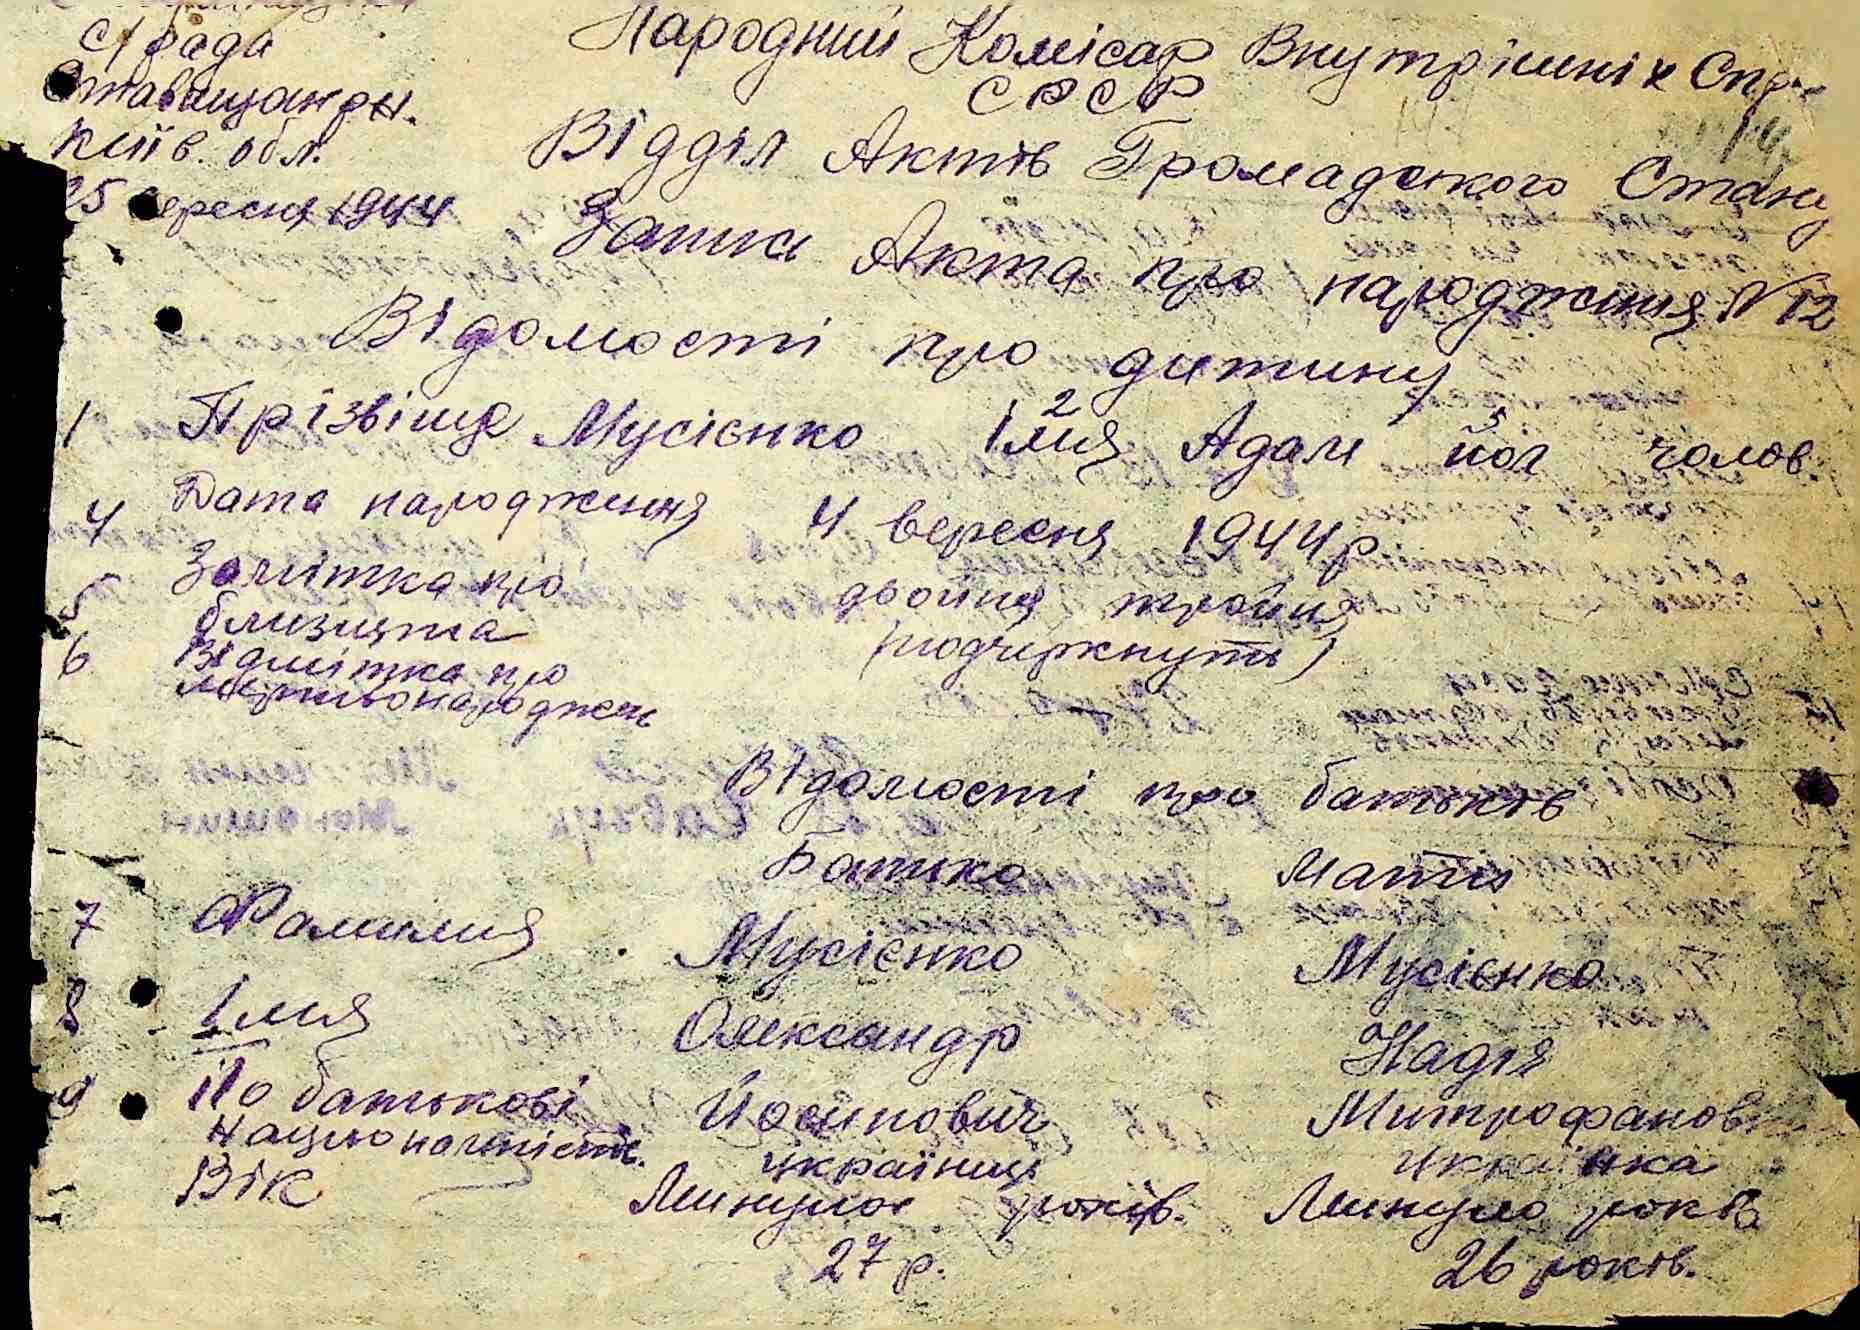 с/рада
Ставищан рн.
Київ. обл.
25 вересня 1944
Народний Комісар Внутрішніх Спр
СРСР
Відділ Актів Громадского Стану
Запис Акта про народження N 12
Відомості про дитину
1 Прізвіще Мусієнко 2 Імия Адам 3 пол чолов.
4 Дата народження 4 вересня 1944 р
5 Замітка про близнята двойня тройня (подчеркнуть)
6 Відмітка про мертвонароджен —
Відомості про батьків
Батько Мати
7 Фамилия Мусієнко Мусієнко
8 Імия Олександр Надія
9 По батькові Йосипович Митрофановн
Націоналність. українець українка
Вік Минуло років. Минуло років
27 р. 26 років.